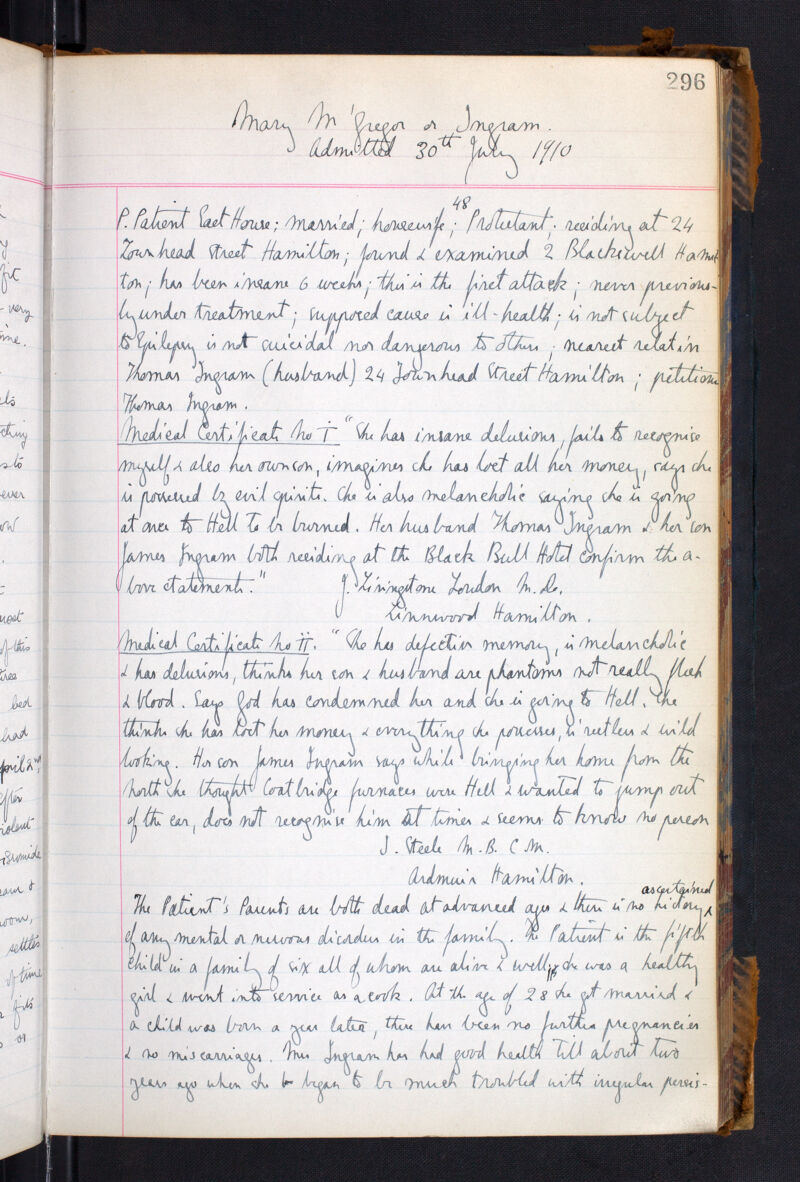 296
Mary M'Gregor or Ingram.
Admitted 30th July 1910
P. Patient East House; married; housewife; 48; Protestant; residing at 24
Townhead Street Hamilton; found & examined 2 Blackswell Hamil-
ton; has been insane 6 weeks; this is the first attack; never previous-
ly under treatment; supposed cause is ill-health; is not subject
to Epilepsy is not suicidal nor dangerous to others; nearest relation
Thomas Ingram (husband) 24 Townhead Street Hamilton; petitioner
Thomas Ingram.
Medical Certificate No I "She has insane delusions, fails to recognise
myself & also her own son, imagines she has lost all her money, says she
is possessed by evil spirits. She is also melancholic saying she is going
at once to Hell to be burned. Her husband Thomas Ingram & her son
James Ingram both residing at the Black Bull Hotel confirm the a-
bove statements." J. Livingstone Loudon M.D.
Linnwood Hamilton.
Medical Certificate No II. "She has defective memory, is melancholic
& has delusions, thinks her son & husband are phantoms not really flesh
& blood. Says God has condemned her and she is going to Hell. She
thinks she has lost her money & everything she possesses, is restless & wild
looking. Her son James Ingram says while bringing her home from the
north she thought Coatbridge furnaces were Hell & wanted to jump out
of the car, does not recognise him at times & seems to know no person
J. Steele M.B. C.M.
Ardmuir Hamilton.
The Patient's Parents are both dead at advanced ages & there is no ascertained history
of any mental or nervous disorders in the family. The Patient is the fifth
child in a family of six all of whom are alive & well, she was a healthy
girl & went into service as a cook. At the age of 28 she got married &
a child was born a year later, there have been no further pregnancies
& no miscarriages. Mrs Ingram has had good health till about two
years ago when she began to be much troubled with irregular persis-
very
bed
had
after
of time
fits
or